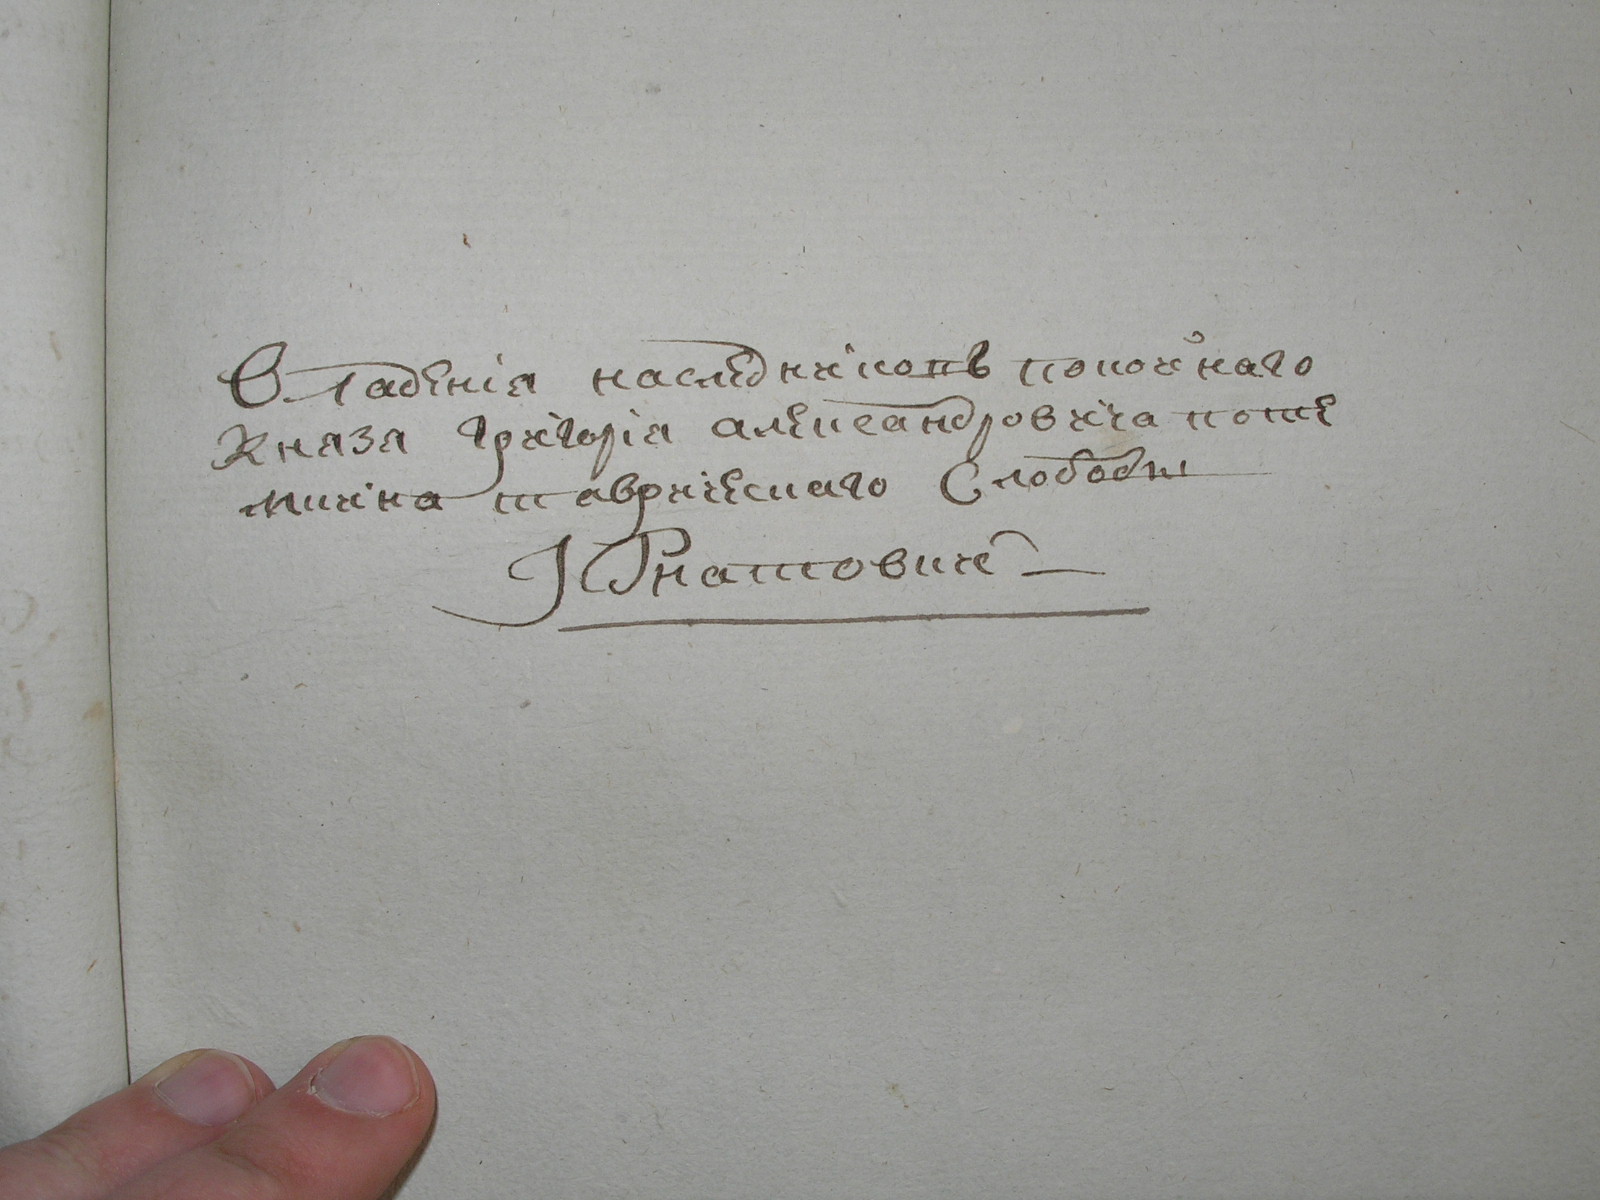 Владенія наследниковъ покойнаго
Князя Григорія александровича поте
мкина таврическаго Слободы
Игнатовки